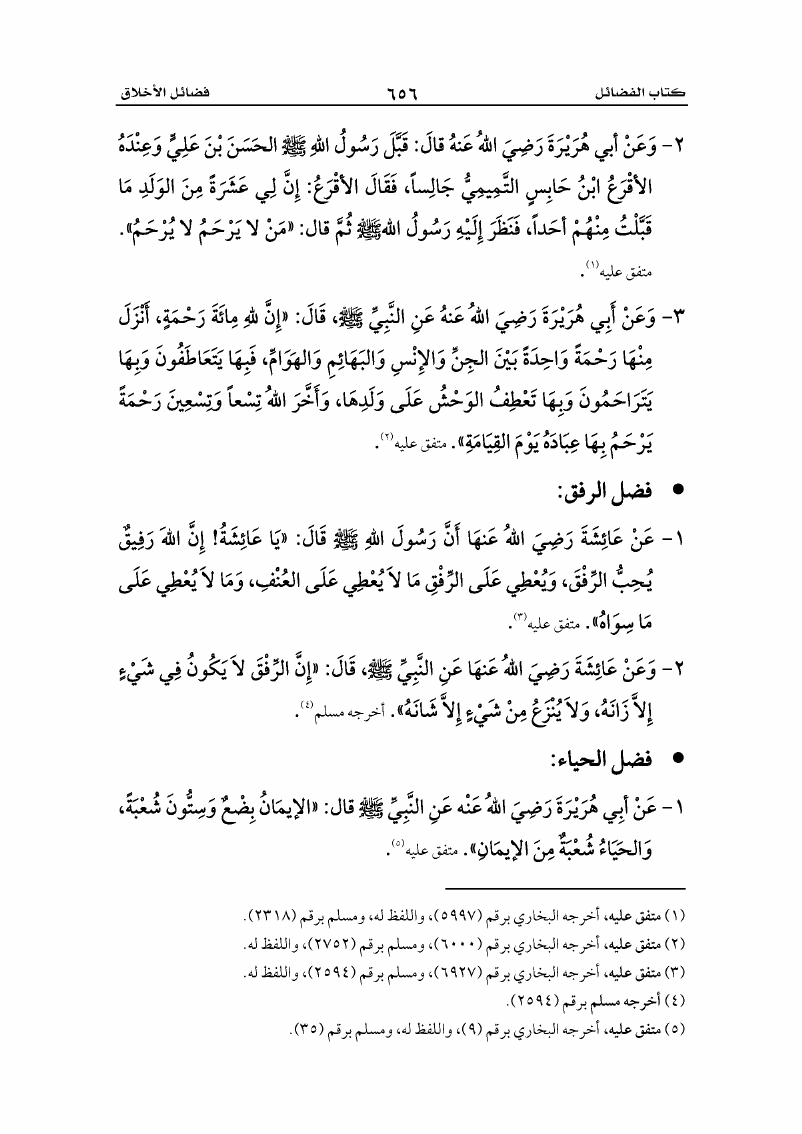 كتاب الفضائل ٦٥٦ فضائل الأخلاق
٢- وَعَنْ أبي هُرَيْرَةَ رَضِيَ اللهُ عَنهُ قالَ: قَبَّلَ رَسُولُ اللهِ ﷺ الحَسَنَ بْنَ عَلِيٍّ وَعِنْدَهُ
الأقْرَعُ ابْنُ حَابِسٍ التَّمِيمِيُّ جَالِساً، فَقَالَ الأقْرَعُ: إنَّ لِي عَشَرَةً مِنَ الوَلَدِ مَا
قَبَّلْتُ مِنْهُمْ أحَداً، فَنَظَرَ إلَيْهِ رَسُولُ اللهﷺ ثُمَّ قال: «مَنْ لا يَرْحَمُ لا يُرْحَمُ».
متفق عليه(١).
٣- وَعَنْ أَبِي هُرَيْرَةَ رَضِيَ اللهُ عَنهُ عَنِ النَّبِيِّ ﷺ، قَالَ: «إنَّ لله مِائَةَ رَحْمَةٍ، أَنْزَلَ
مِنْهَا رَحْمَةً وَاحِدَةً بَيْنَ الجِنِّ وَالإنْسِ وَالبَهَائِمِ وَالهَوَامِّ، فَبِهَا يَتَعَاطَفُونَ وَبِهَا
يَتَرَاحَمُونَ وَبِهَا تَعْطِفُ الوَحْشُ عَلَى وَلَدِهَا، وَأَخَّرَ اللهُ تِسْعاً وَتِسْعِينَ رَحْمَةً
يَرْحَمُ بِهَا عِبَادَهُ يَوْمَ القِيَامَةِ». متفق عليه(٢).
● فضل الرفق:
١- عَنْ عَائِشَةَ رَضِيَ اللهُ عَنهَا أَنَّ رَسُولَ اللهِ ﷺ قَالَ: «يَا عَائِشَةُ! إنَّ اللهَ رَفِيقٌ
يُحِبُّ الرِّفْقَ، وَيُعْطِي عَلَى الرِّفْقِ مَا لاَ يُعْطِي عَلَى العُنْفِ، وَمَا لاَ يُعْطِي عَلَى
مَا سِوَاهُ». متفق عليه(٣).
٢- وَعَنْ عَائِشَةَ رَضِيَ اللهُ عَنهَا عَنِ النَّبِيِّ ﷺ، قَالَ: «إنَّ الرِّفْقَ لاَ يَكُونُ فِي شَيْءٍ
إلاَّ زَانَهُ، وَلاَ يُنْزَعُ مِنْ شَيْءٍ إلاَّ شَانَهُ». أخرجه مسلم(٤).
● فضل الحياء:
١- عَنْ أبِي هُرَيْرَةَ رَضِيَ اللهُ عَنْه عَنِ النَّبِيِّ ﷺ قال: «الإيمَانُ بِضْعٌ وَسِتُّونَ شُعْبَةً،
وَالحَيَاءُ شُعْبَةٌ مِنَ الإيمَانِ». متفق عليه(٥).
(١) متفق عليه، أخرجه البخاري برقم (٥٩٩٧)، واللفظ له، ومسلم برقم (٢٣١٨).
(٢) متفق عليه، أخرجه البخاري برقم (٦٠٠٠)، ومسلم برقم (٢٧٥٢)، واللفظ له.
(٣) متفق عليه، أخرجه البخاري برقم (٦٩٢٧)، ومسلم برقم (٢٥٩٤)، واللفظ له.
(٤) أخرجه مسلم برقم (٢٥٩٤).
(٥) متفق عليه، أخرجه البخاري برقم (٩)، واللفظ له، ومسلم برقم (٣٥).